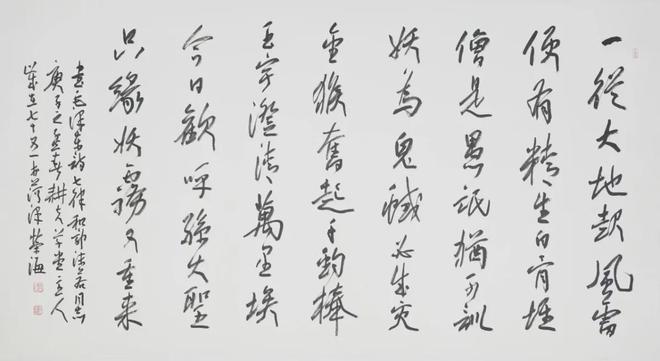 一從大地起風雷
便有精生白骨堆
僧是愚氓猶可訓
妖為鬼蜮必成灾
金猴奮起千鈞棒
玉宇澄清萬里埃
今日歡呼孫大聖
只緣妖霧又重来
書毛澤東詩七律和郭沫若同志
庚子之孟春耕夫草堂主人
歲在七十又一於菏澤